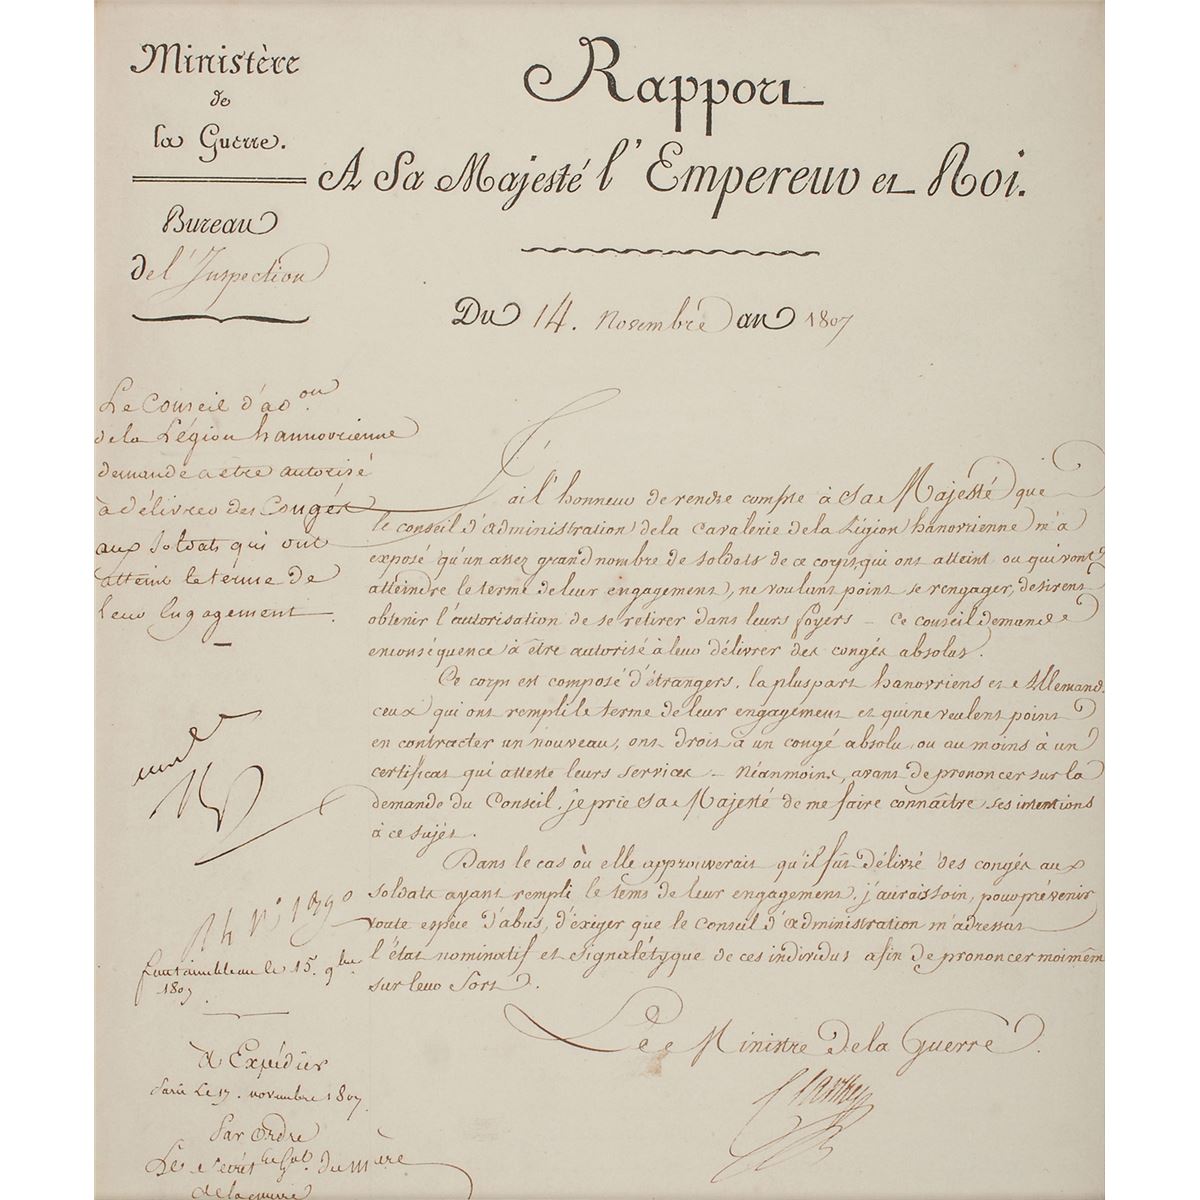 Ministère
de
la Guerre.
Bureau
de l'Inspection
Rapport
A Sa Majesté l'Empereur et Roi.
Du 14. Novembre an 1807
Le Conseil d'adon.
de la Légion hannovrienne
demande a etre autorisé
à délivrer des Congés
aux Soldats qui ont
atteint le terme de
leur Engagement.
J'ai l'honneur de rendre compte à Sa Majesté que
le conseil d'administration de la cavalerie de la Légion hanovrienne m'a
exposé qu'un assez grand nombre de soldats de ce corps, qui ont atteint ou qui vont
atteindre le terme de leur engagement, ne voulant point se rengager, desirent
obtenir l'autorisation de se rétirer dans leurs foyers – Ce conseil demande
en conséquence à être autorisé à leur délivrer des congés absolus.
Ce corps est composé d'étrangers, la pluspart hanovriens et Allemand.
ceux qui ont rempli le terme de leur engagement et qui ne veulent point
en contracter un nouveau, ont droit à un congé absolu ou au moins à un
certificat qui atteste leurs services – Néanmoins, avant de prononcer sur la
demande du Conseil, je prie Sa Majesté de me faire connaître ses intentions
à ce sujet.
Dans le cas où elle approuverait qu'il fut délivré des congés aux
soldats ayant rempli le tems de leur engagement, j'aurai soin, pour prévenir
toute espèce d'abus, d'exiger que le Conseil d'Administration m'adressat
l'état nominatif et signalétyque de ces individus afin de prononcer moi mêm
sur leur Sort.
Le Ministre de la Guerre.
Clarke
N
fontainebleau le 15. 9bre
1807.
à Expédier
Paris Le 17. novembre 1807.
Par Ordre
Le Secrét. Gal. du mère
de la guerre